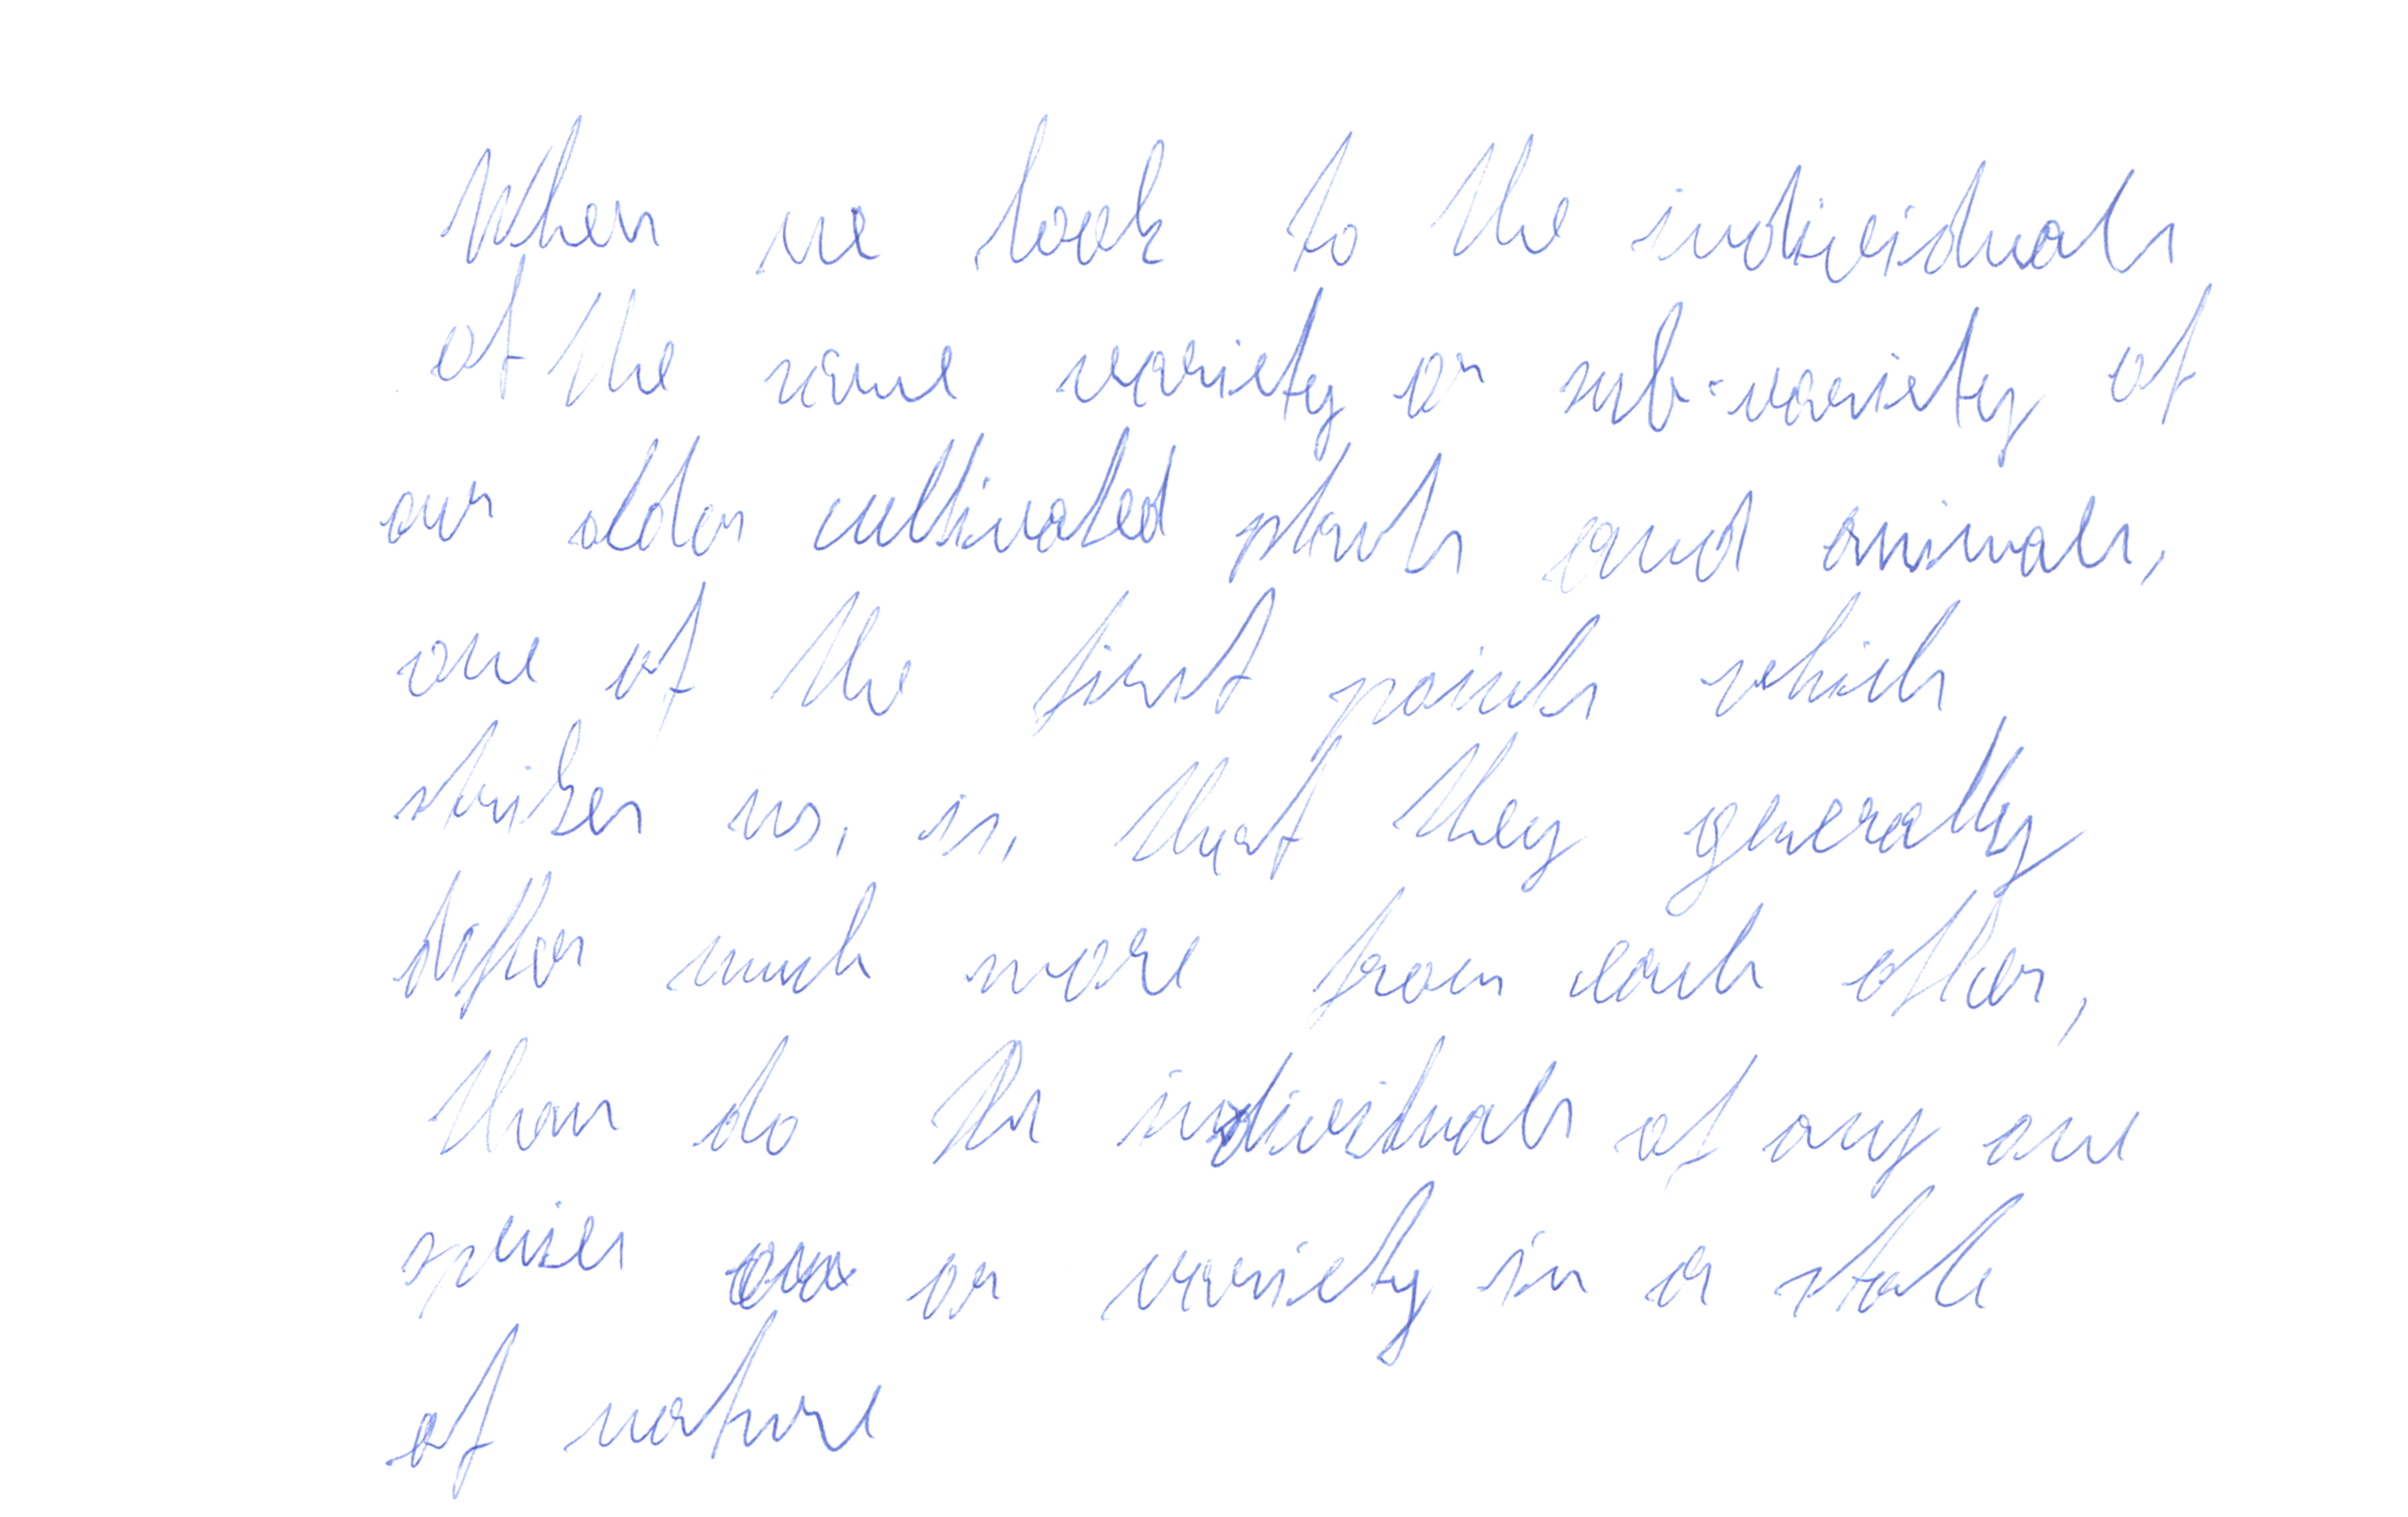 When we look to the individuals
of the same variety or sub-variety of
our older cultivated plants and animals,
one of the first points which
strikes us, is, that they generally
differ much more from each other,
than do the individuals of any one
species or variety in a state
of nature